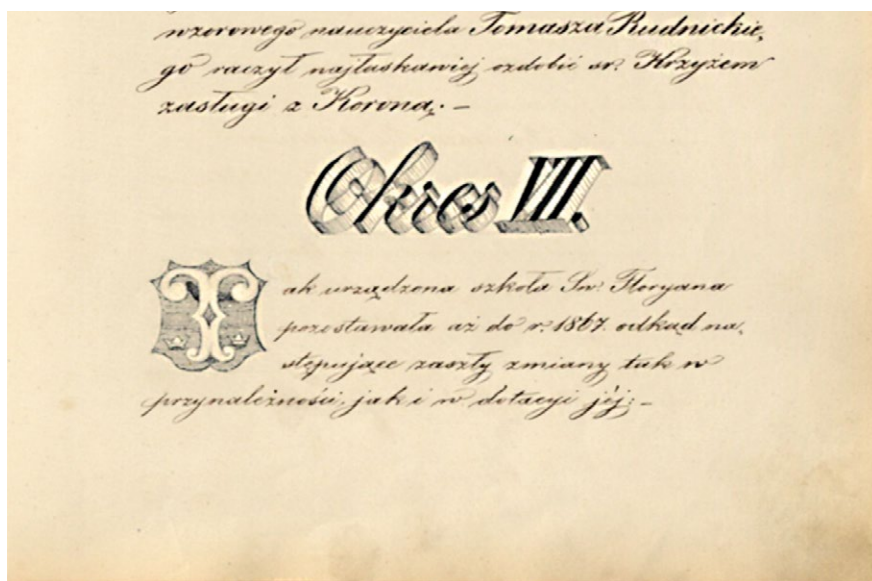 wzorowego nauczyciela Tomasza Rudnickie,
go raczył najłaskawiej ozdobić sr. Krzyżem
zasługi z Koroną. —
Okres VII.
Tak urządzona szkoła Św. Floryana
pozostawała aż do r. 1867. odkąd na,
stępujące zaszły zmiany tak w
przynależności, jak i w dotacyi jéj: —